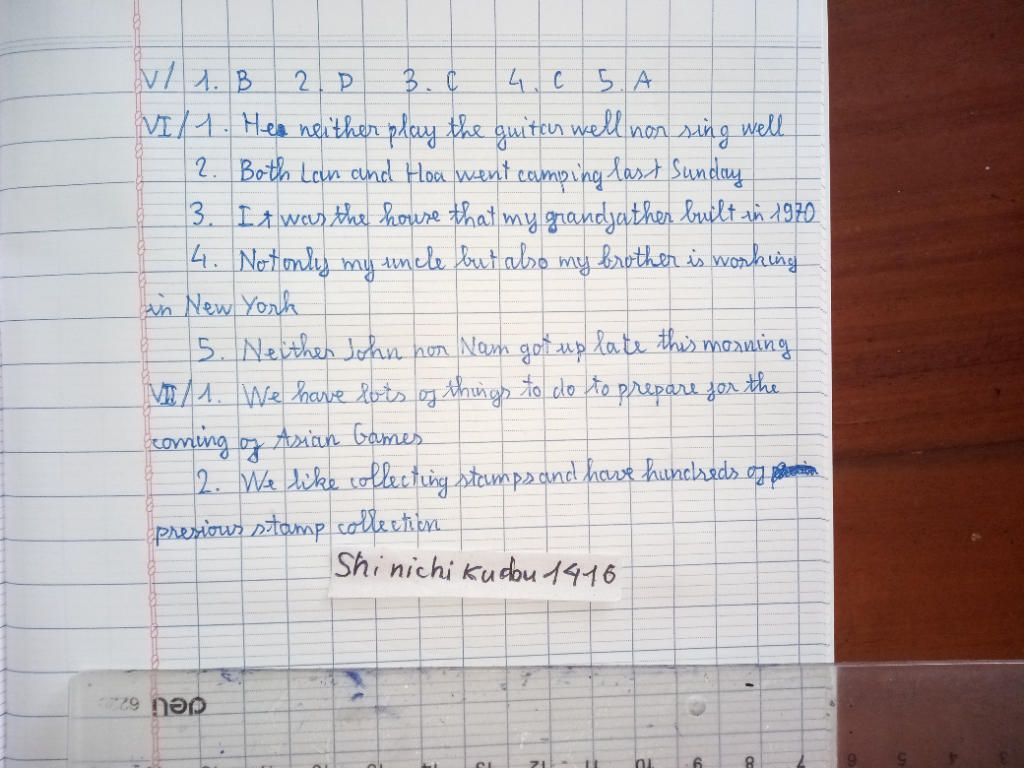 V/ 1. B 2. D 3. C 4. C 5. A
VI/ 1. He neither play the guitar well nor sing well
2. Both Lan and Hoa went camping last Sunday
3. It was the house that my grandfather built in 1970
4. Not only my uncle but also my brother is working
in New York
5. Neither John nor Nam got up late this morning
VII/ 1. We have lots of things to do to prepare for the
coming of Asian Games
2. We like collecting stamps and have hundreds of
presious stamp collection
Shinichi Kudou 1416
deli
7 6 5 4 3
12 11 10 9 8